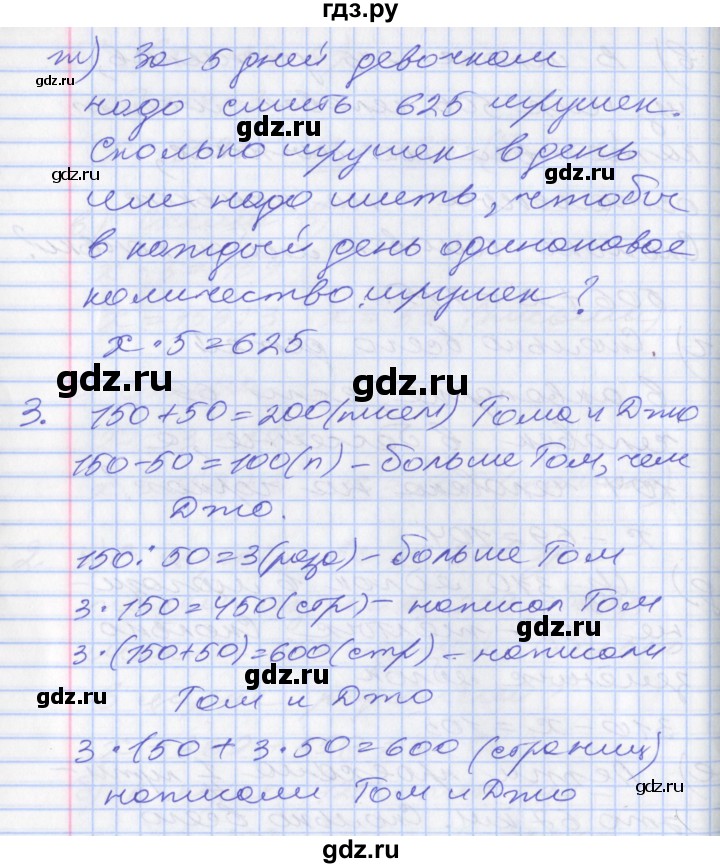 гдз.ру
т) За 5 дней девочкам
надо сшить 625 игрушек.
gdz.ru
gdz.ru
Сколько игрушек в день
gdz.ru
gdz.ru
им надо шить, чтобы
в каждый день одинаковое
количество игрушек?
x · 5 = 625
gdz.ru
gdz.ru
3. 150 + 50 = 200 (писем) Тома и Джо
150 - 50 = 100 (п) - больше Том, чем
Джо.
gdz.ru
150 : 50 = 3 (раза) - больше Том
3 · 150 = 450 (стр) - написал Том
gdz.ru
gdz.ru
3 · (150 + 50) = 600 (стр) - написали
Том и Джо
3 · 150 + 3 · 50 = 600 (страниц)
gdz.ru
написали Том и Джо
gdz.ru
gdz.ru